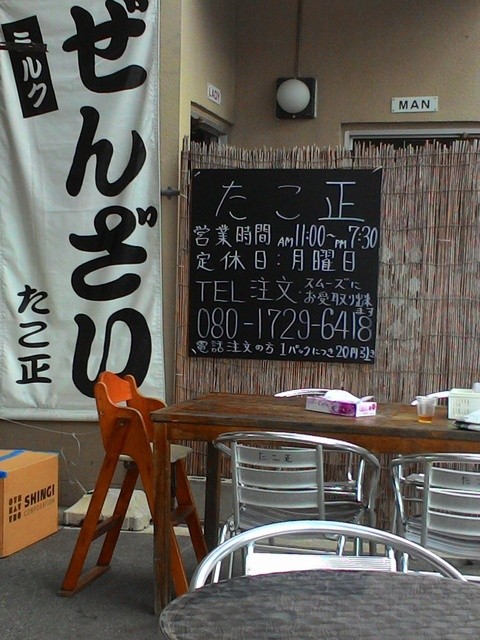 ミルク
ぜんざい
たこ正
LADY
MAN
たこ正
営業時間 AM11:00~PM7:30
定休日:月曜日
TEL注文 スムーズに
お受取り出来
ます
080-1729-6418
電話注文の方 1パックにつき20円引き
たこ正
SHINGI
CORPORATION